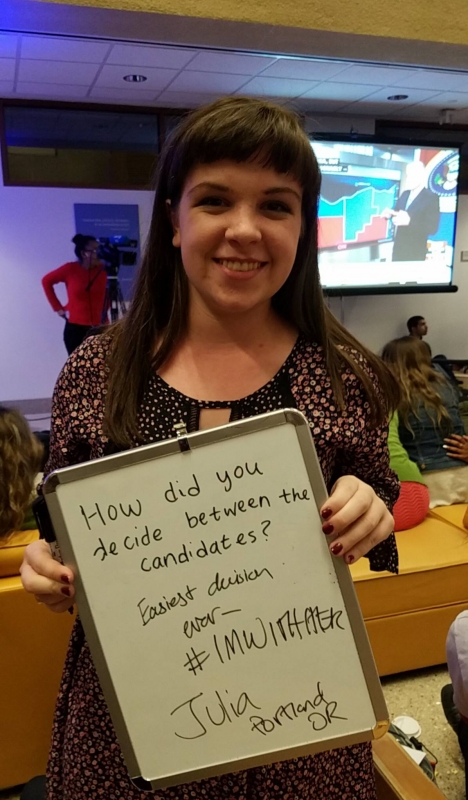 How did you
decide between the
candidates?
Easiest decision
ever—
#IMWITHHER
Julia
Portland
OR